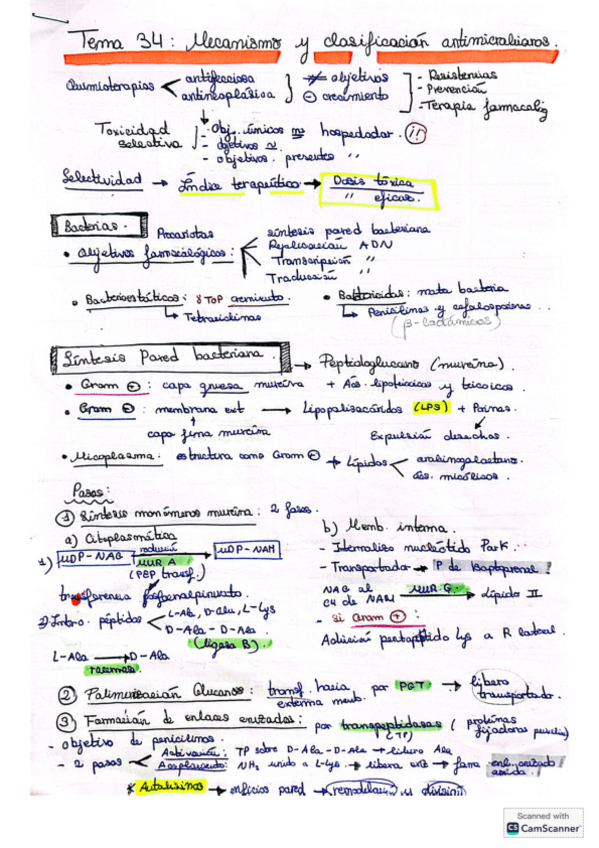 Tema 34: Mecanismo y clasificación antimicrobianos.
Quimioterapias < antifecciosa antineoplásica } ≠ objetivos ⊖ crecimiento ] - Resistencias - Prevención - Terapia
Toxicidad selectiva
- Obj. únicos no hospedador.
- objetivos ≈
- objetivos. presentes "
Selectividad → Índice terapéutico → Dosis tóxica / " eficaz.
Bacterias. Procariotas
• Objetivos farmacológicos:
síntesis pared bacteriana
Replicación ADN
Transcripción "
Traducción "
• Bacteriostáticos: STOP
↳ Tetraciclinas
• Bactericidas: mata bacteria
↳ Penicilinas y cefalosporinas
(β-lactámicos)
Síntesis Pared bacteriana. → Peptidoglucano (mureína)
• Gram ⊕: capa gruesa mureína + Ács. lipoteicoicos y teicoicos.
• Gram ⊖: membrana ext → Lipopolisacáridos (LPS) + Porinas.
capa fina mureína
Expulsión desechos.
• Micoplasma: estructura como Gram → Lípidos < arabinogalactano. ács. micólicos.
Pasos:
① Síntesis monómeros mureína: 2 fases.
a) Citoplasmática
1) UDP-NAG → UDP-NAM
MUR A
(PEP transf.)
transferencia fosfoenolpiruvato.
2) péptidos < L-Ala, D-Glu, L-Lys D-Ala-D-Ala.
(ligasa B)
L-Ala → D-Ala
racemasa
b) Memb. interna.
- nucleótido Park.
- Transportador → P de
NAG al C4 de NAM MUR G. → Lípido II
- si Gram ⊕:
Adición pentapéptido Lys a R lateral.
② Polimerización Glucanos: transf. hacia externa memb. por PGT → libera transportador.
③ Formación de enlaces cruzados: por transpeptidasas (TP) (proteínas fijadoras
- objetivo de penicilinas.
- 2 pasos < Activación: TP sobre D-Ala-D-Ala → libera Ala
Acoplamiento: NH₂ unido a L-Lys → libera → forma
* Autolisinas → orificios pared → remodelación y división
Scanned with
CS CamScanner